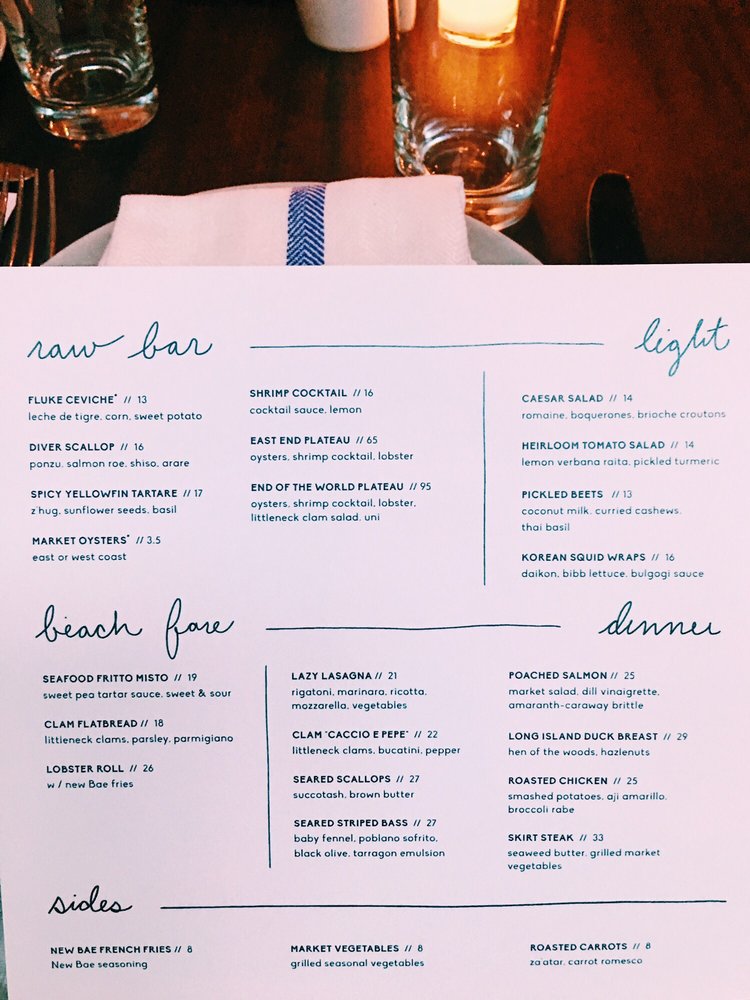 raw bar
FLUKE CEVICHE* // 13
leche de tigre, corn, sweet potato
DIVER SCALLOP // 16
ponzu, salmon roe, shiso, arare
SPICY YELLOWFIN TARTARE // 17
z'hug, sunflower seeds, basil
MARKET OYSTERS* // 3.5
east or west coast
SHRIMP COCKTAIL // 16
cocktail sauce, lemon
EAST END PLATEAU // 65
oysters, shrimp cocktail, lobster
END OF THE WORLD PLATEAU // 95
oysters, shrimp cocktail, lobster,
littleneck clam salad, uni
light
CAESAR SALAD // 14
romaine, boquerones, brioche croutons
HEIRLOOM TOMATO SALAD // 14
lemon verbana raita, pickled turmeric
PICKLED BEETS // 13
coconut milk, curried cashews,
thai basil
KOREAN SQUID WRAPS // 16
daikon, bibb lettuce, bulgogi sauce
beach fare
SEAFOOD FRITTO MISTO // 19
sweet pea tartar sauce, sweet & sour
CLAM FLATBREAD // 18
littleneck clams, parsley, parmigiano
LOBSTER ROLL // 26
w / new Bae fries
dinner
LAZY LASAGNA // 21
rigatoni, marinara, ricotta,
mozzarella, vegetables
CLAM "CACCIO E PEPE" // 22
littleneck clams, bucatini, pepper
SEARED SCALLOPS // 27
succotash, brown butter
SEARED STRIPED BASS // 27
baby fennel, poblano sofrito,
black olive, tarragon emulsion
POACHED SALMON // 25
market salad, dill vinaigrette,
amaranth-caraway brittle
LONG ISLAND DUCK BREAST // 29
hen of the woods, hazlenuts
ROASTED CHICKEN // 25
smashed potatoes, aji amarillo,
broccoli rabe
SKIRT STEAK // 33
seaweed butter, grilled market
vegetables
sides
NEW BAE FRENCH FRIES // 8
New Bae seasoning
MARKET VEGETABLES // 8
grilled seasonal vegetables
ROASTED CARROTS // 8
za'atar, carrot romesco